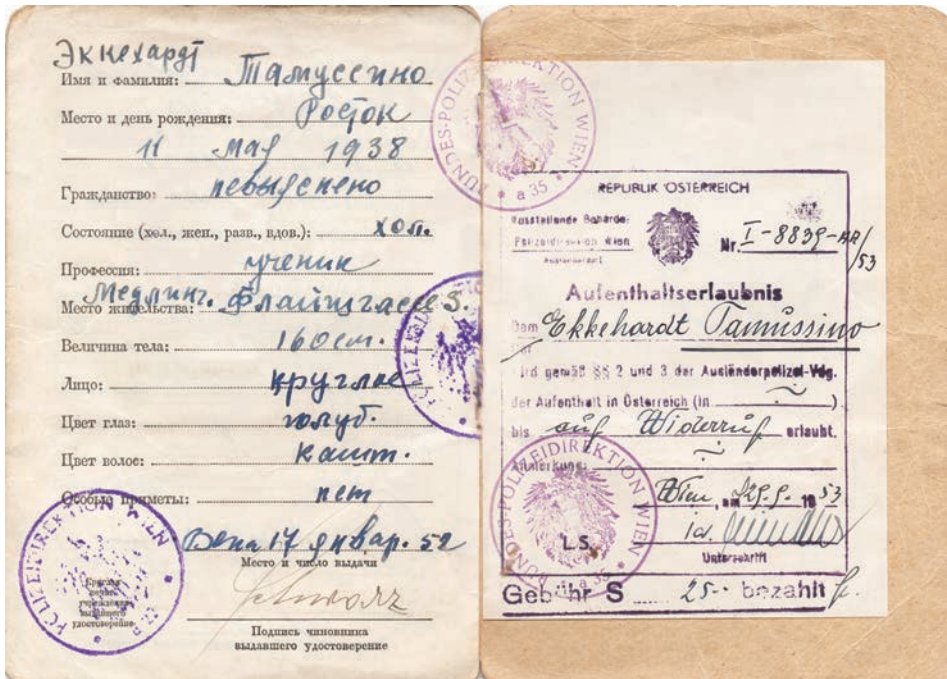 Эккехардт
Имя и фамилия: Тамуссино
Место и день рождения: Росток
11 мая 1938
Гражданство: невыяснено
Состояние (хол., жен., разв., вдов.): хол.
Профессия: ученик
Место жительства: Медлинг. Флайшгассе 5.
Величина тела: 160 cm.
Лицо: круглое
Цвет глаз: голуб.
Цвет волос: кашт.
Особые приметы: нет
Вена 17 январ. 52
Место и число выдачи
Schwarz
Подпись чиновника
выдавшего удостоверение
Круглая
печать
учреждения
выдавшего
удостоверение
POLIZEIDIREKTION WIEN
BUNDES-POLIZEIDIREKTION WIEN
* a 35 *
REPUBLIK ÖSTERREICH
Ausstellende Behörde:
Polizeidirektion Wien
Nr. I-8839-
/53
Aufenthaltserlaubnis
Dem Ekkehardt Tamussino
wird gemäß §§ 2 und 3 der Ausländerpolizei-Vdg.
der Aufenthalt in Österreich (in ~ )
bis auf Widerruf erlaubt.
Anmerkung: ~
Wien, am 29.9. 1953
Unterschrift
L.S.
BUNDES-POLIZEIDIREKTION WIEN
* a 35 *
Gebühr S 25.- bezahlt